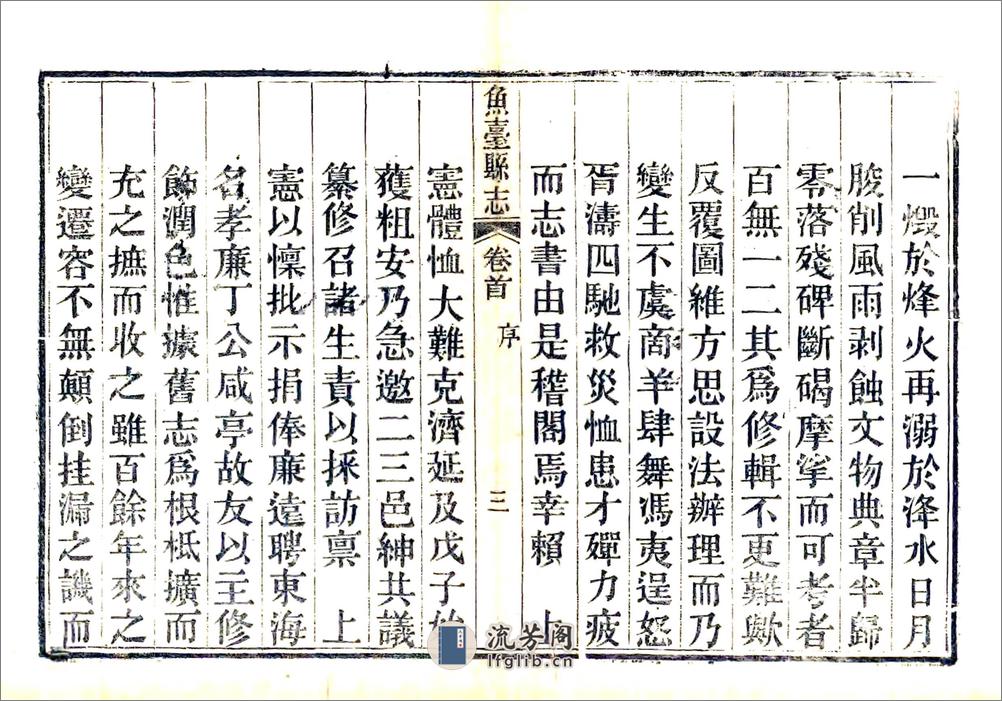 一燬於烽火再溺於洚水日月
朘削風雨剥蝕文物典章半歸
零落殘碑斷碣摩挲而可考者
百無一二其為修輯不更難歟
反覆圖維方思設法辦理而乃
變生不虞商羊肆舞馮夷逞怒
胥濤四馳救災恤患才殫力疲
而志書由是稽閣焉幸賴　上
魚臺縣志　卷首　序　三
憲體恤大難克濟延及戊子始
獲粗安乃急邀二三邑紳共議
纂修召諸生責以採訪禀　上
憲以懍批示捐俸廉遠聘東海
名孝廉丁公咸亭故友以主修
飾潤色惟據舊志為根柢擴而
充之摭而收之雖百餘年來之
變遷容不無顛倒挂漏之譏而
流芳阁
lfglib.cn